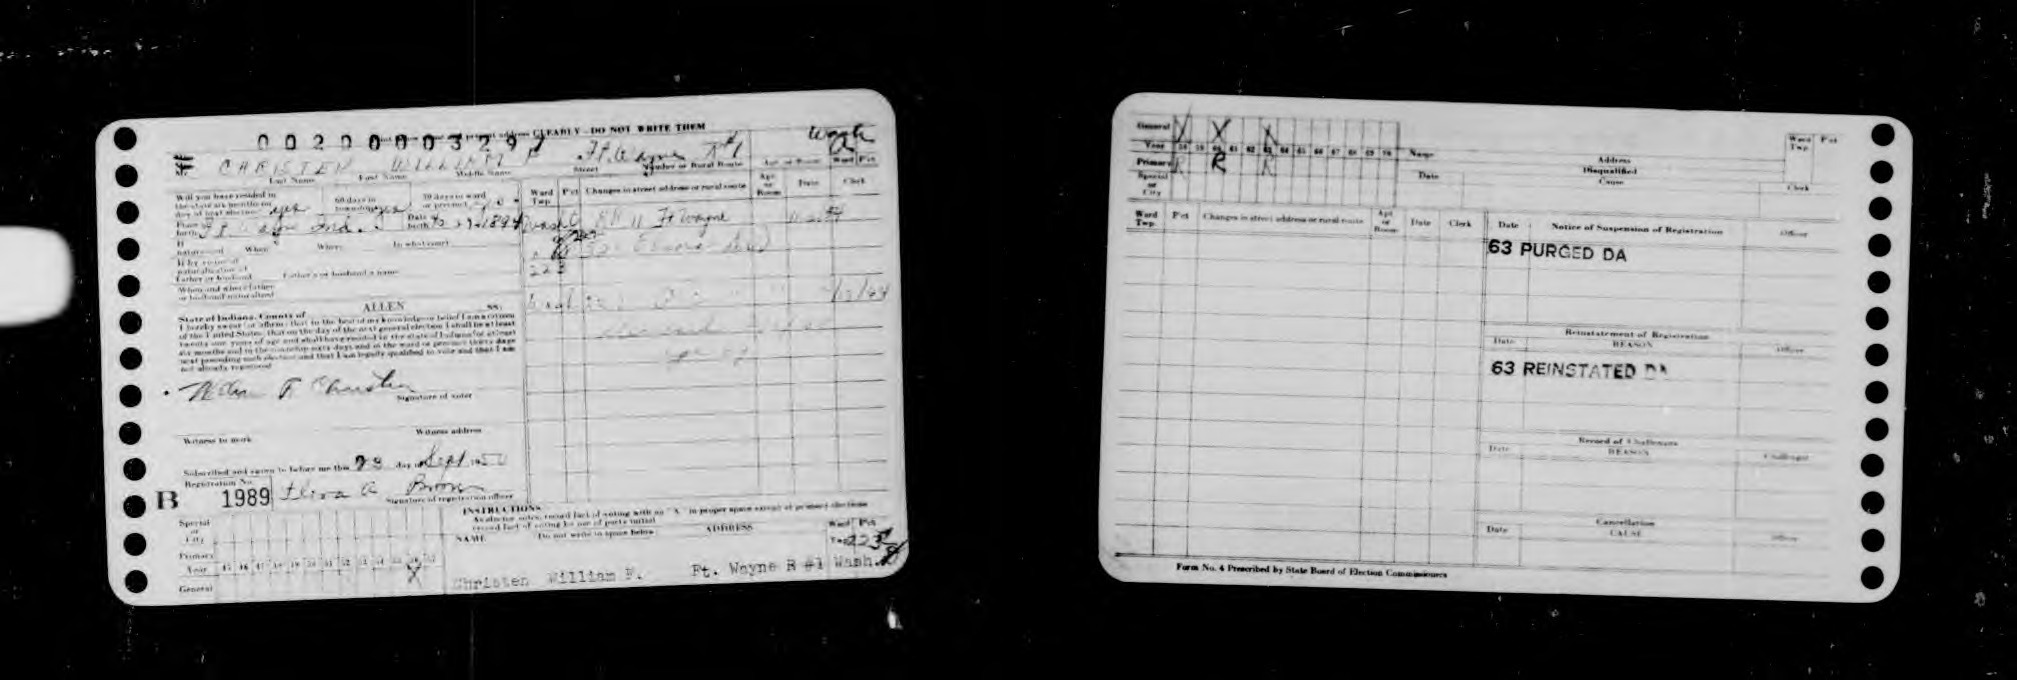 0020000329
present address CLEARLY - DO NOT WRITE THEM
Wash
Mr. CHRISTEN WILLIAM F Ft. Wayne R#1 A
Last Name First Name Middle Name Street Number or Rural Route Apt. or Room Ward Pct
Will you have resided in
the state six months on
day of next election yes 60 days in township yes 30 days in ward or precinct
Place of birth Ft. Wayne Ind. Date of birth
If naturalized When Where In what court
If by virtue of
naturalization of
Father or husband Father's or husband's name
When and where father
or husband naturalized
State of Indiana, County of ALLEN SS:
I hereby swear (or affirm) that to the best of my knowledge or belief I am a citizen
of the United States, that on the day of the next general election I shall be at least
twenty-one years of age and shall have resided in the state of Indiana for at least
six months and in the township sixty days and in the ward or precinct thirty days
next preceding such election and that I am legally qualified to vote and that I am
not already registered
William F Christen
Signature of voter
Witness to mark Witness address
Subscribed and sworn to before me this 23 day of Sept 1950
Registration No.
B 1989
Signature of registration officer
Ward Twp. Pct Changes in street address or rural route Apt. or Room Date Clerk
Wash C RR 11 Ft Wayne
223
Special or City
Primary
Year 45 46 47 48 49 50 51 52 53 54 55 56 57
General X
INSTRUCTIONS
As elector votes, record fact of voting with an "X" in proper space except at primary elections
record fact of voting by use of party initial
NAME Do not write in space below ADDRESS Ward Twp. Pct
223
Christen William F. Ft. Wayne R #1 Wash.
General X X X
Year 58 59 60 61 62 63 64 65 66 67 68 69 70 Name Address Ward Twp. Pct
Primary R R R Disqualified
Special or City Date Cause Clerk
Ward Twp. Pct Changes in street address or rural route Apt. or Room Date Clerk
Date Notice of Suspension of Registration Officer
63 PURGED DA
Reinstatement of Registration
Date REASON Officer
63 REINSTATED DA
Record of Challenges
Date REASON Challenger
Cancellation
Date CAUSE Officer
Form No. 4 Prescribed by State Board of Election Commissioners